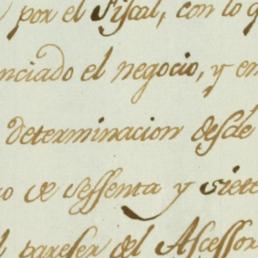 por el Fiscal, con lo q
nciado el negocio, y en
determinacion desde
o de sessenta y siete
l pareser del Assessor